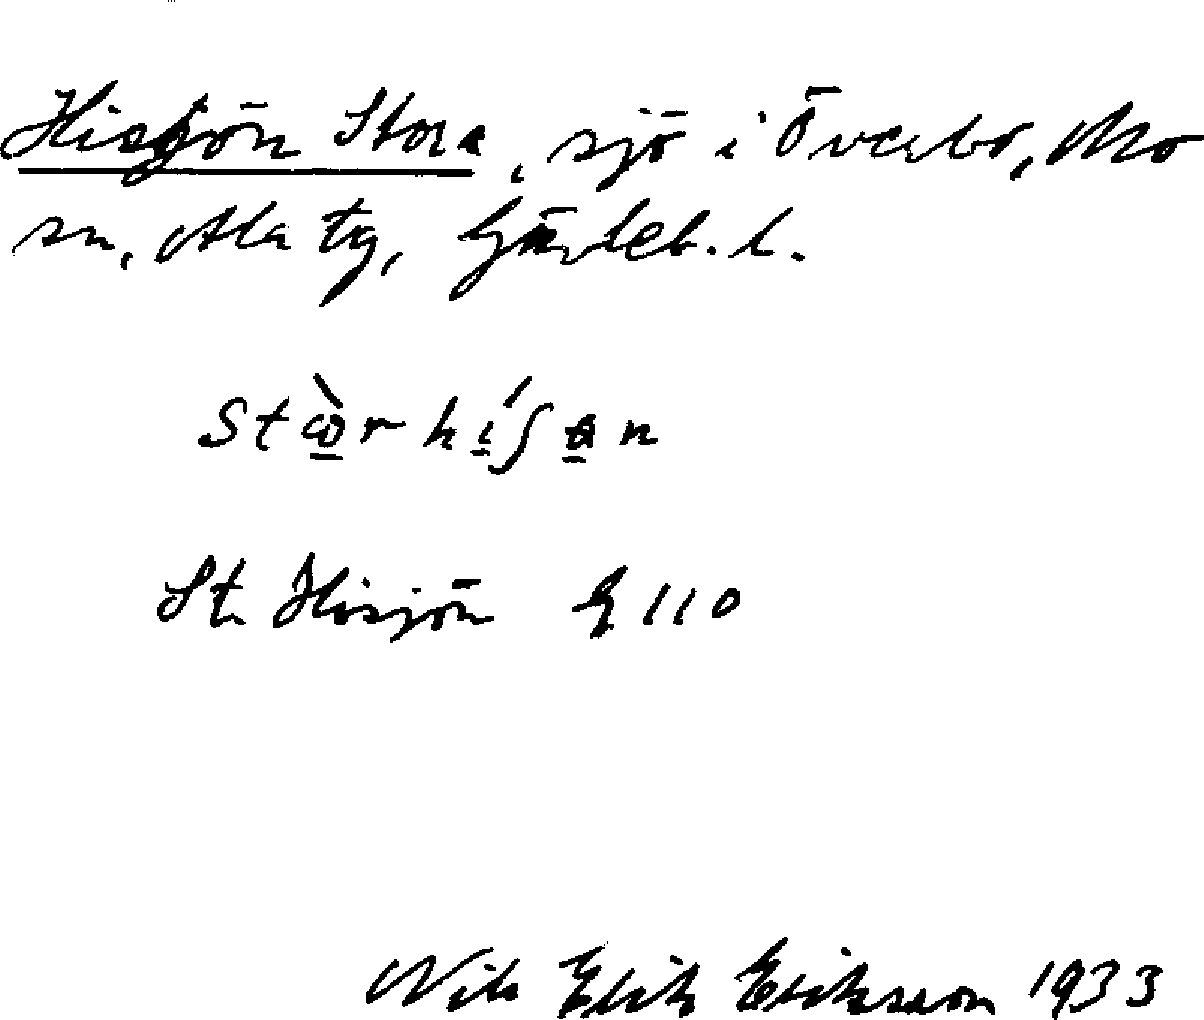 Hisjön Stora, sjö i Överbo, Mo
sn, Ala tg, Gävleb. l.
St. Hisjön G 110
Nils Erik Eriksson 1933